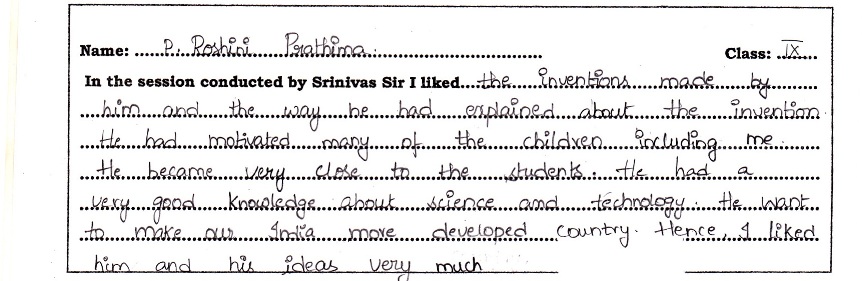 Name: ......P. Roshini Prathima. Class: IX
In the session conducted by Srinivas Sir I liked the inventions made by
him and the way he had explained about the invention
He had motivated many of the children including me.
He became very close to the students. He had a
very good knowledge about science and technology. He want
to make our India more developed country. Hence, I liked
him and his ideas very much